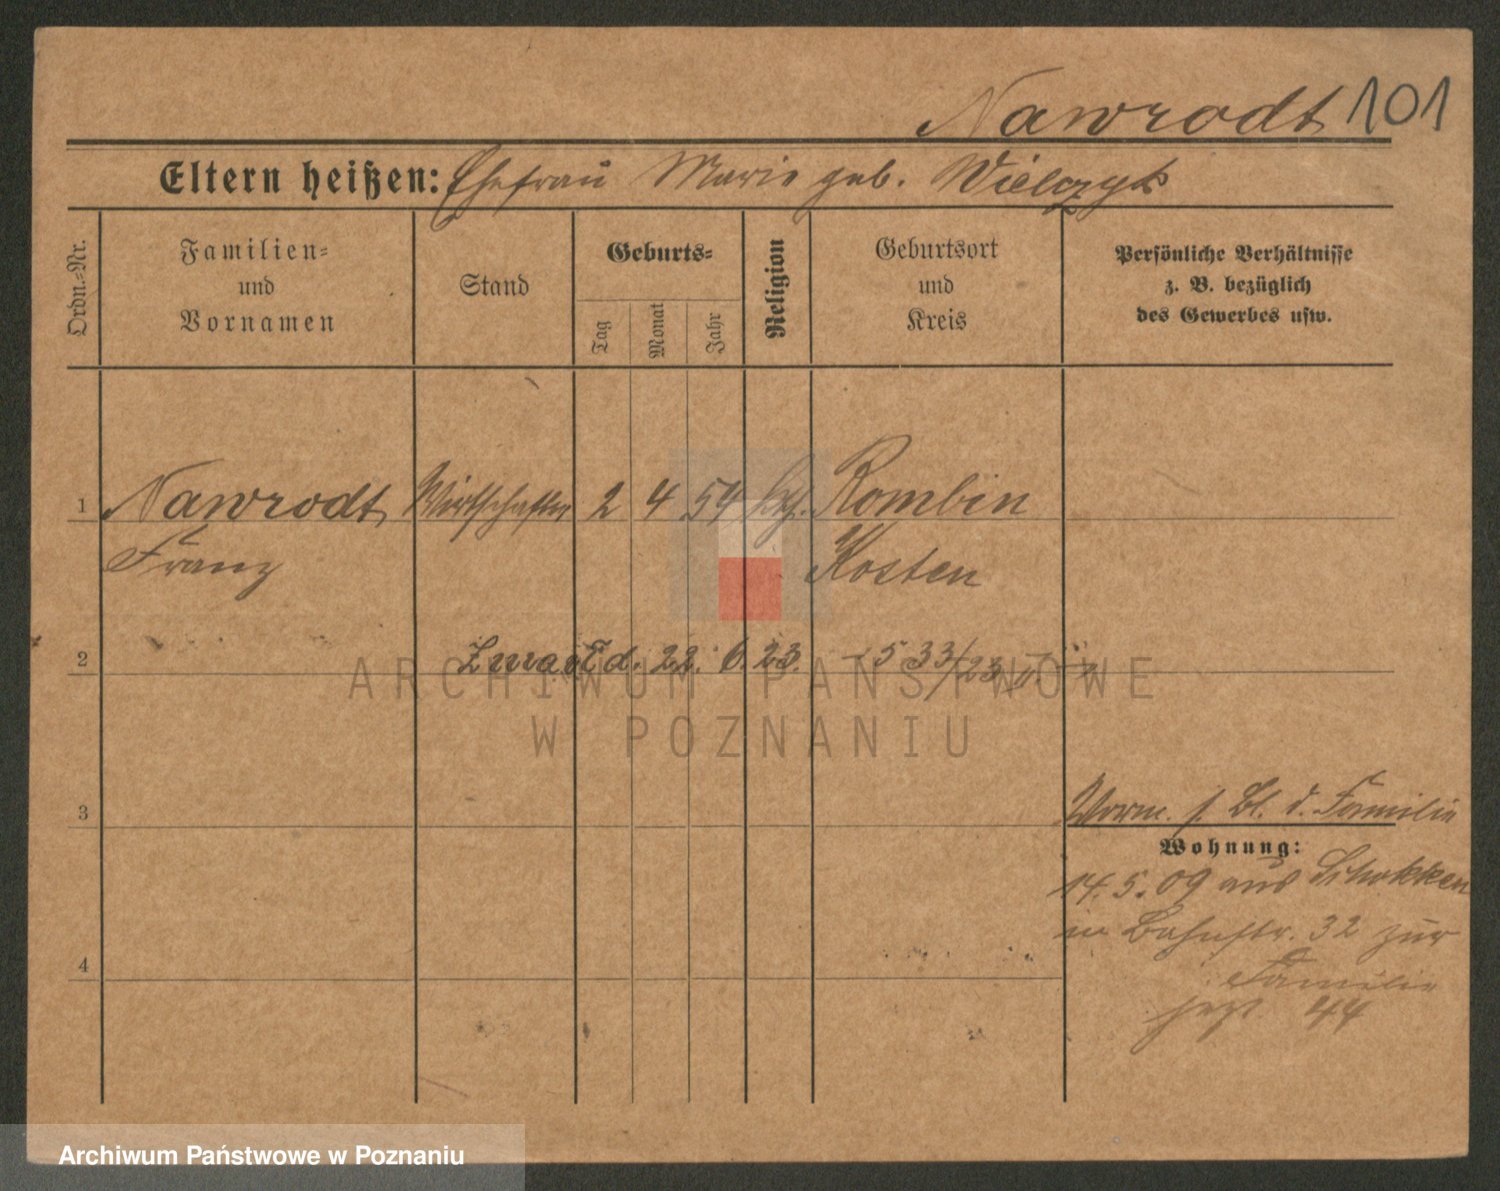 Nawrodt 101
Eltern heißen: Ehefrau Marie geb. Wielczyk
Ordn.=Nr.
Familien=
und
Vornamen
Stand
Geburts=
Tag
Monat
Jahr
Religion
Geburtsort
und
Kreis
Persönliche Verhältnisse
z. B. bezüglich
des Gewerbes usw.
1 Nawrodt Wirtschafter 2 4 54 kg. Rombin
Franz Kosten
2 Zmarł d. 22. 6. 23. 533/23 II
3
Vorm. s. Bl. d. Familie
Wohnung:
14.5.09 aus Schokken
in Bahnstr. 32 zur
Familie
jetzt 44
4
ARCHIWUM PAŃSTWOWE
W POZNANIU
Archiwum Państwowe w Poznaniu